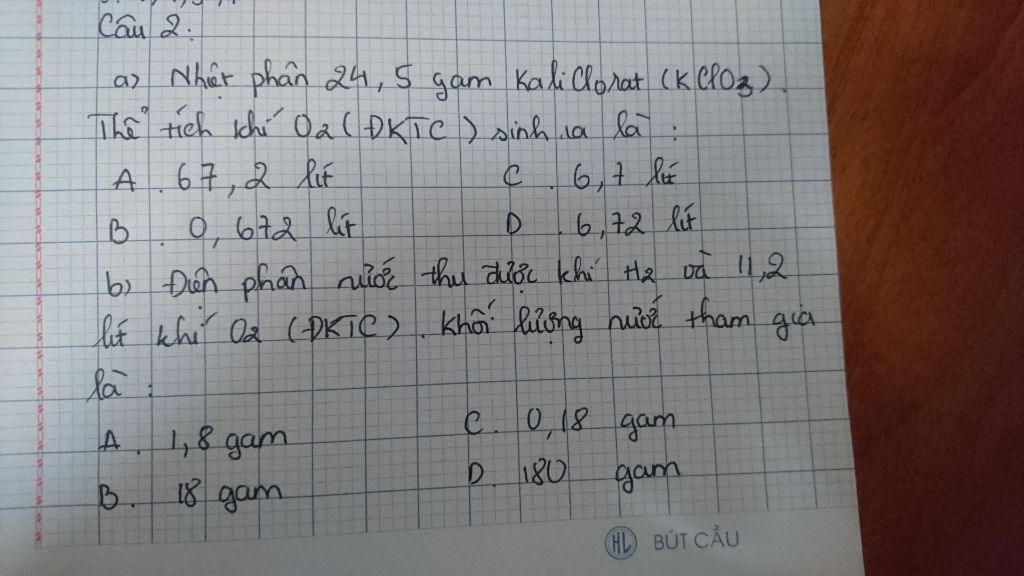 Câu 2:
a) Nhiệt phân 24,5 gam KaliClorat (KClO3).
Thể tích khí O2 (ĐKTC) sinh ra là:
A. 67,2 lít C. 6,7 lít
B. 0,672 lít D. 6,72 lít
b) Điện phân nước thu được khí H2 và 11,2
lít khí O2 (ĐKTC). Khối lượng nước tham gia
là:
A. 1,8 gam C. 0,18 gam
B. 18 gam D. 180 gam
HL BÚT CẦU